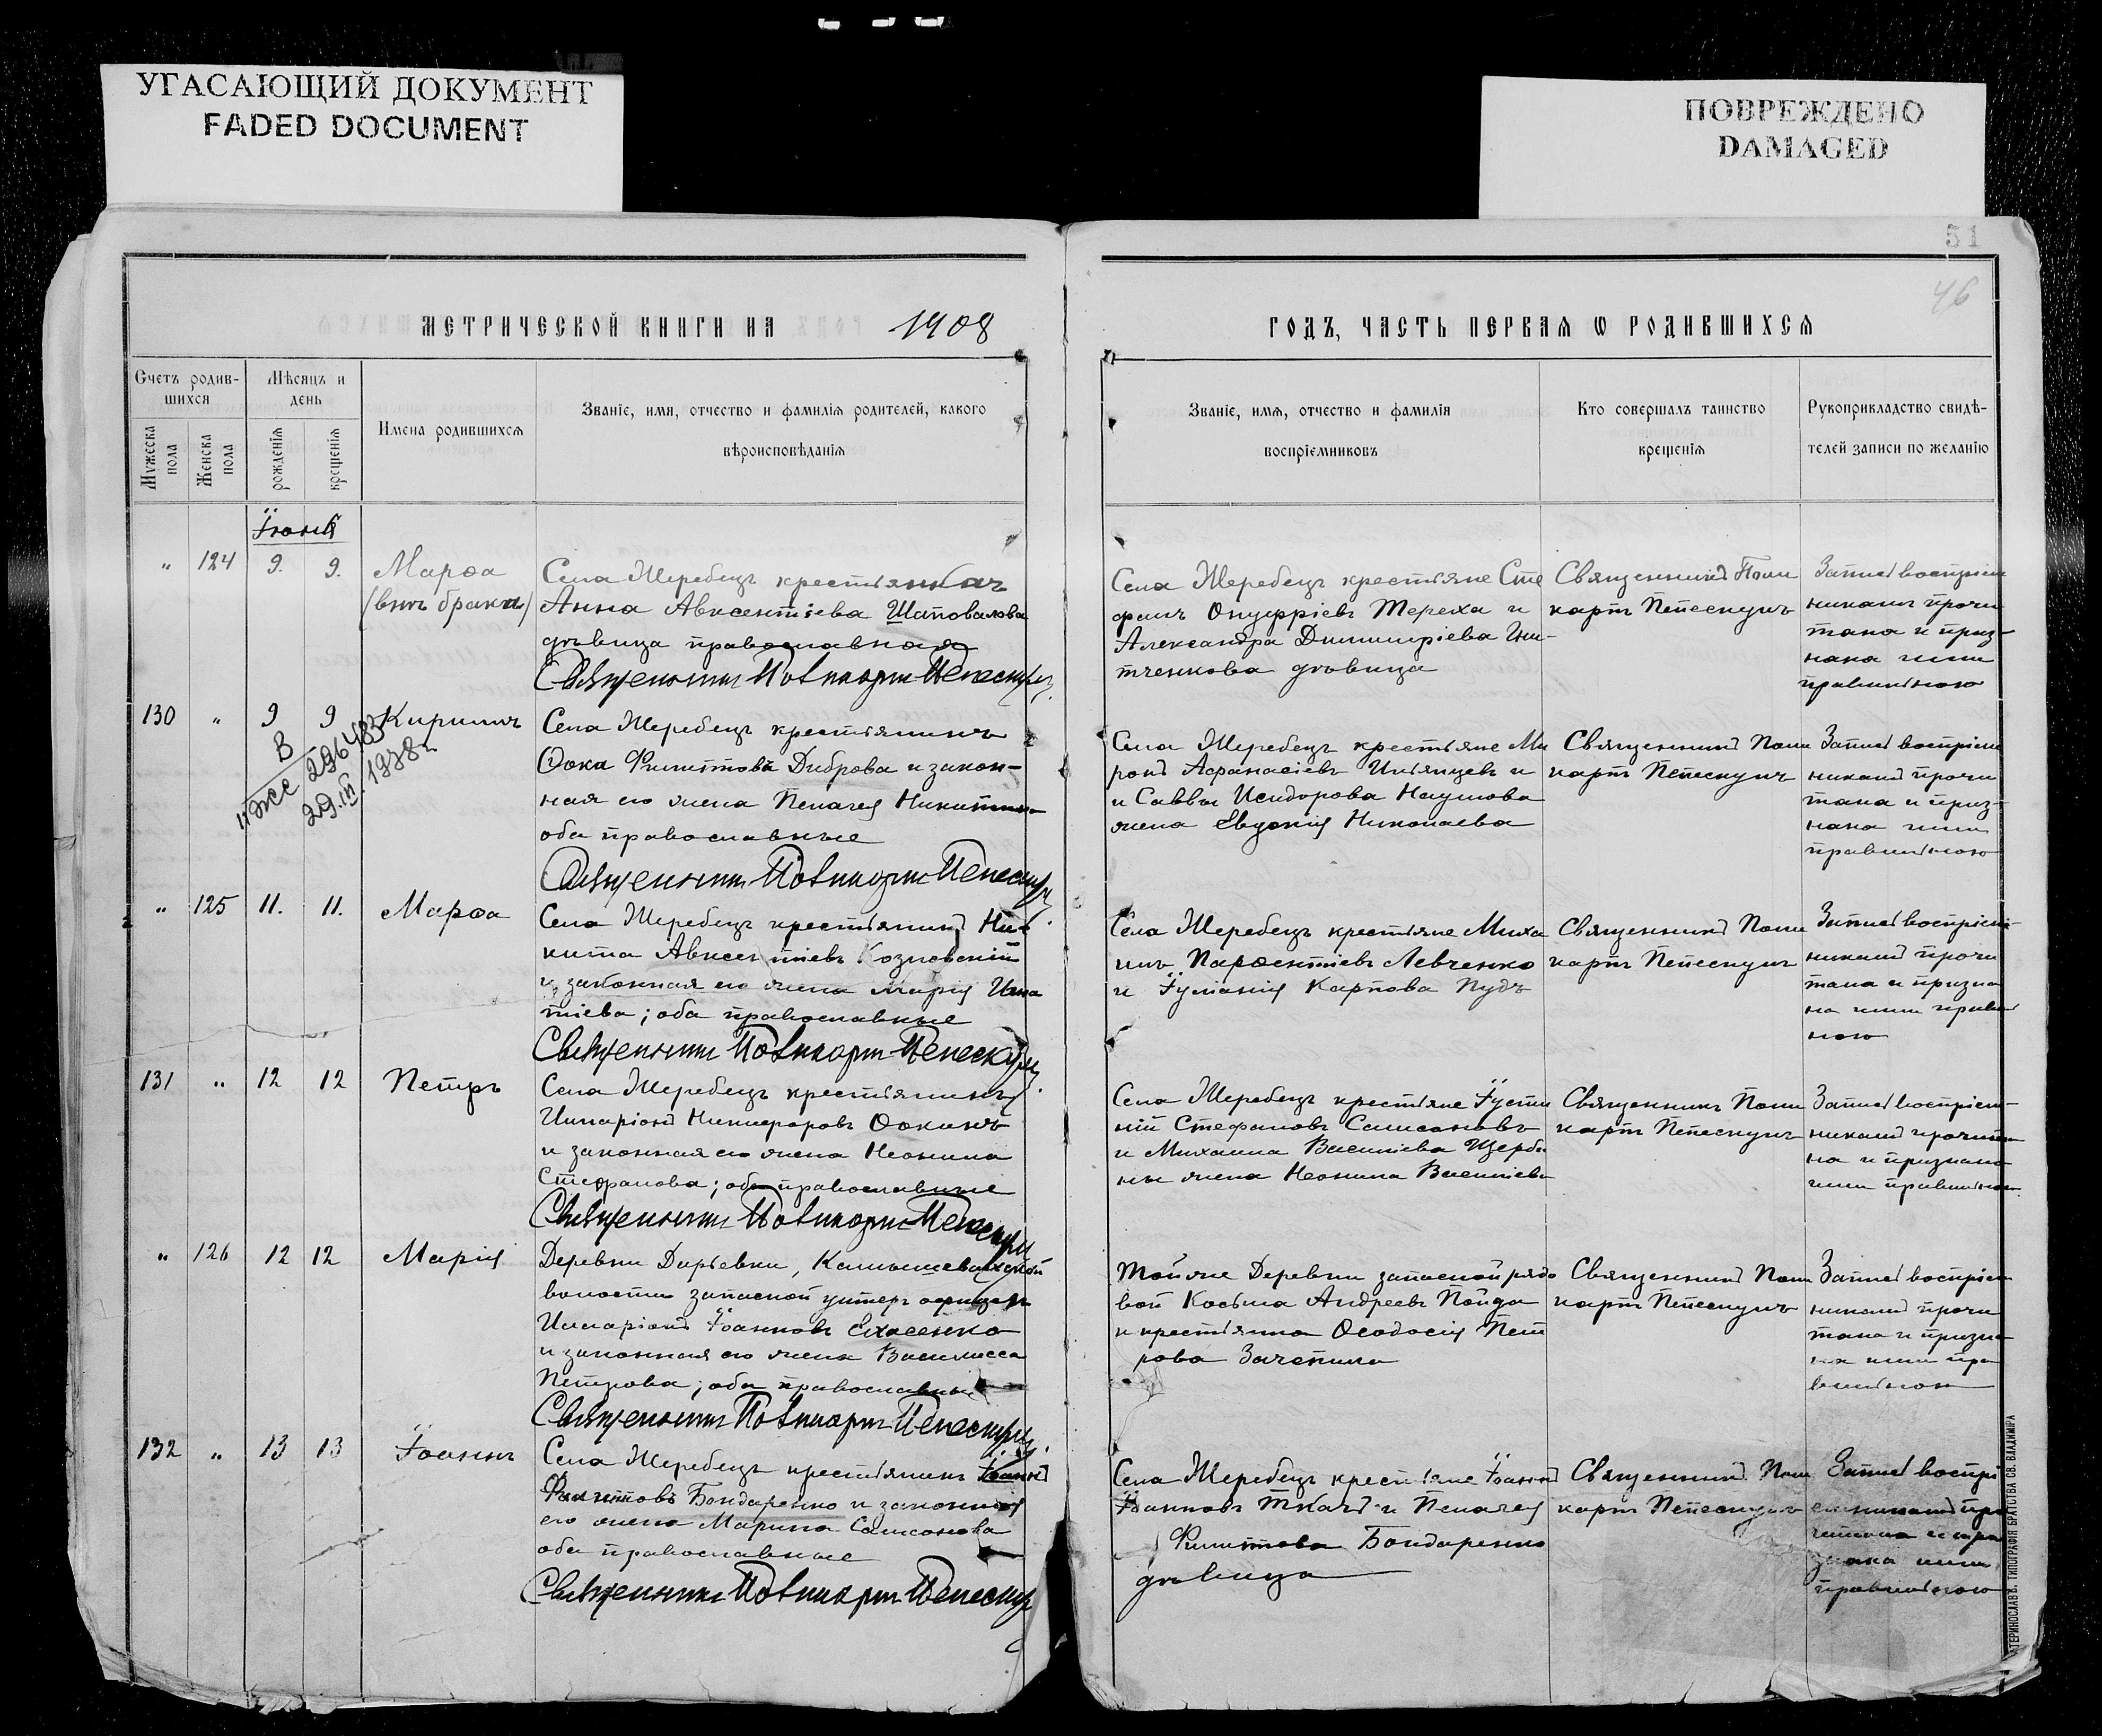 УГАСАЮЩИЙ ДОКУМЕНТ
FADED DOCUMENT
ПОВРЕЖДЕНО
DAMAGED
51
46
МЕТРИЧЕСКОЙ КНИГИ НА 1908
ГОДЪ, ЧАСТЬ ПЕРВАЯ Ѡ РОДИВШИХСЯ
Счетъ родив-
шихся
Мѣсяцъ и
день
Мужеска пола
Женска пола
рожденія
крещенія
Имена родившихся
Званіе, имя, отчество и фамилія родителей, какого
вѣроисповѣданія
Званіе, имя, отчество и фамилія
воспріемниковъ
Кто совершалъ таинство
крещенія
Рукоприкладство свидѣ-
телей записи по желанію
Іюнь
" 124 9. 9. Марѳа
(внѣ брака)
Села Жеребецъ крестьянка
Анна Авксентіева Шаповалова
дѣвица православная
Священникъ Поликарпъ Пепескулъ
Села Жеребецъ крестьяне Сте
фанъ Онуфріевъ Тереха и
Александра Димитріева
дѣвица
Священникъ Поли
карпъ Пепескулъ
Запись воспріем
никамъ прочи
тана и приз-
нана ими
правильною
130 " 9 9 Кириллъ
В
11 ЖС 296483
29.III.1938г.
Села Жеребецъ крестьянинъ
Ѳока Филиповъ Диброва и закон-
ная его жена Пелагея Никитина
оба православные
Священникъ Поликарпъ Пепескулъ
Села Жеребецъ крестьяне Ми
ронъ Афанасіевъ и
и Саввы Исидорова Наумова
жена Евдокія Николаева
Священникъ Поли
карпъ Пепескулъ
Запись воспріем
никамъ прочи
тана и приз-
нана ими
правильною
" 125 11. 11. Марѳа
Села Жеребецъ крестьянинъ Ни-
кита Авксентіевъ Козловскій
и законная его жена Марія Игна
тіева; оба православные
Священникъ Поликарпъ Пепескулъ
Села Жеребецъ крестьяне Миха
илъ Парѳентіевъ Левченко
и Іуліанія Карпова Пудъ
Священникъ Поли
карпъ Пепескулъ
Запись воспріем-
никамъ прочи
тана и призна
на ими правиль
ною
131 " 12 12 Петръ
Села Жеребецъ крестьянинъ
Илларіонъ Никифоровъ Ѳокинъ
и законная его жена Неонила
Стефанова; оба православные
Священникъ Поликарпъ Пепескулъ
Села Жеребецъ крестьяне Іусти
ній Стефановъ Самсоновъ
и Михаила Василіева Щерби
ны жена Неонила Василіева
Священникъ Поли
карпъ Пепескулъ
Запись воспріем-
никамъ прочита
на и признана
ими правильною.
" 126 12 12 Марія
Деревни Дарьевки, Камышевахской
волости запасной унтеръ офицеръ
Илларіонъ Іоанновъ
и законная его жена Василисса
Петрова; оба православные
Священникъ Поликарпъ Пепескулъ
Той же Деревни запасной рядо
вой Косьма Андреевъ Пойда
и крестьянка Ѳеодосія Пет
рова Зачепило
Священникъ Поли
карпъ Пепескулъ
Запись воспріем
никамъ прочи
тана и призна
на ими пра
вильною
132 " 13 13 Іоаннъ
Села Жеребецъ крестьянинъ Іоаннъ
Филиповъ Бондаренко и законная
его жена Марина Самсонова
оба православные
Священникъ Поликарпъ Пепескулъ
Села Жеребецъ крестьяне Іоаннъ
Іоанновъ Ткачъ и Пелагея
Филипова Бондаренко
дѣвица
Священникъ Поли
карпъ Пепескулъ
Запись воспрі
емникамъ про
читана и при
знана ими
правильною
ЕКАТЕРИНОСЛАВЪ. ТИПОГРАФІЯ БРАТСТВА СВ. ВЛАДИМІРА